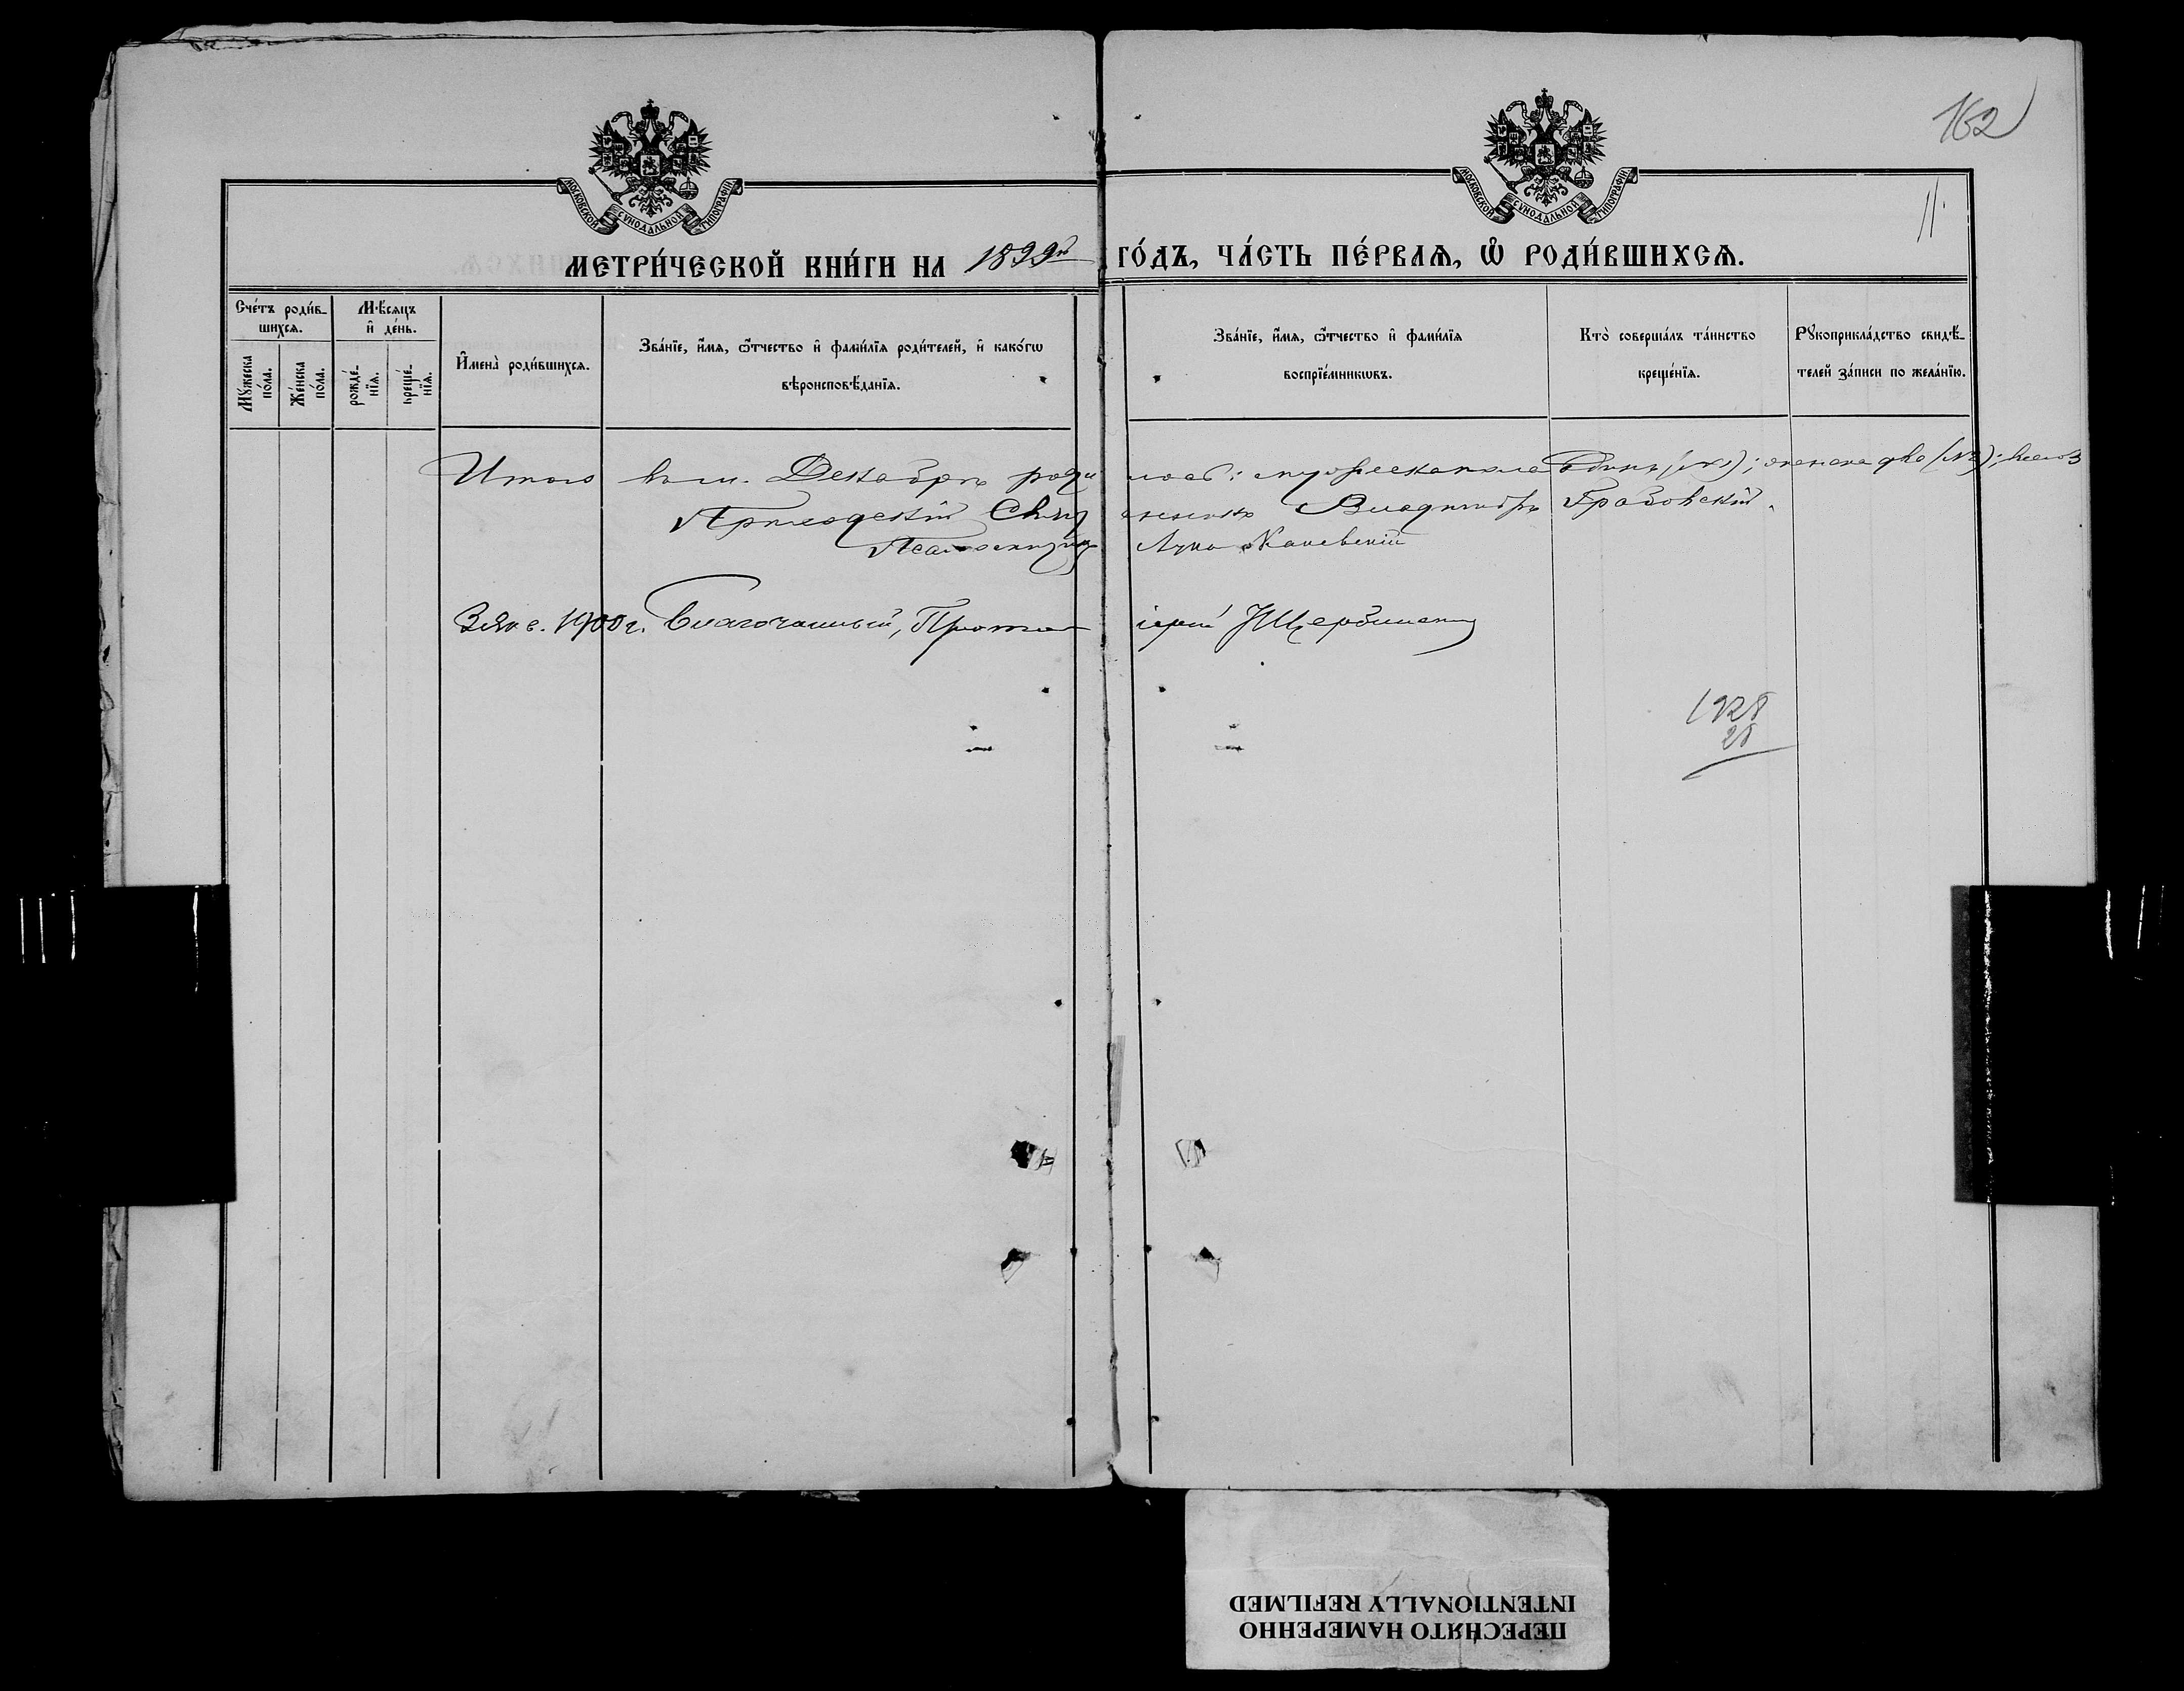 162
11.
МОСКОВСКОЙ СѴНОДАЛЬНОЙ ТИПОГРАФІИ.
МОСКОВСКОЙ СѴНОДАЛЬНОЙ ТИПОГРАФІИ.
МЕТРИ́ЧЕСКОЙ КНИ́ГИ НА 1899й ГО́ДЪ, ЧА́СТЬ ПЕ́РВАѦ, Ѽ РОДИ́ВШИХСѦ.
Сче́тъ роди́в-
шихсѧ.
Мꙋ́жеска
по́ла.
Же́нска
по́ла.
Мѣ́сѧцъ
и҆ де́нь.
рожде́-
нїѧ.
креще́-
нїѧ.
И҆мена̀ роди́вшихсѧ.
Зва́нїе, и҆́мѧ, ѻ҆́тчество и҆ фами́лїѧ роди́телей, и҆ како́гѡ
вѣроисповѣ́данїѧ.
Зва́нїе, и҆́мѧ, ѻ҆́тчество и҆ фами́лїѧ
воспрїе́мникѡвъ.
Кто̀ соверша́лъ та́инство
креще́нїѧ.
Рꙋкоприкла́дство свидѣ́-
телей за́писи по жела́нїю.
Итого въ м. Декабрѣ роди лось: мужеска пола Одинъ (№1); женска два (№2); всего 3
Приходскій Свящ енникъ Владиміръ Грабовскій.
Псаломщикъ Лука Каневскій
1900 г. Благочинный, Прото іерей Щербинскій
1928
28
ПЕРЕСНЯТО НАМЕРЕННО
INTENTIONALLY REFILMED